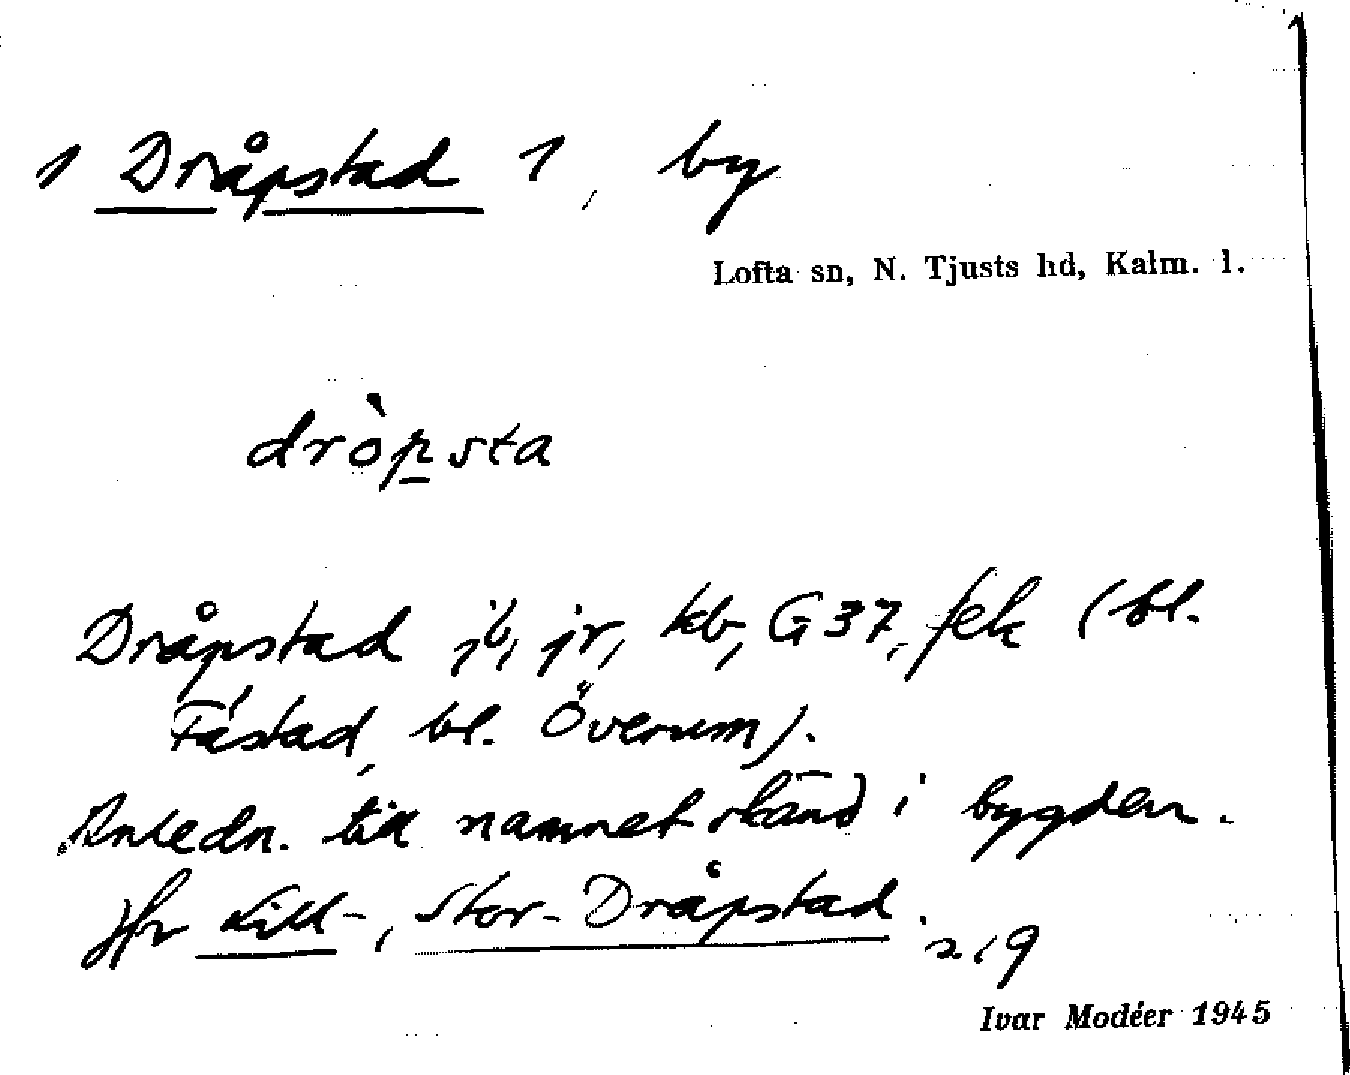 1 Dråpstad 1, by
Lofta sn, N. Tjusts hd, Kalm. l.
dròpsta
Dråpstad ib, jr, kb, G 37, fek (bl.
Fåstad, bl. Överum).
Anledn. till namnet känd i bygden.
Jfr Lill-, Stor-Dråpstad.
Ivar Modéer 1945